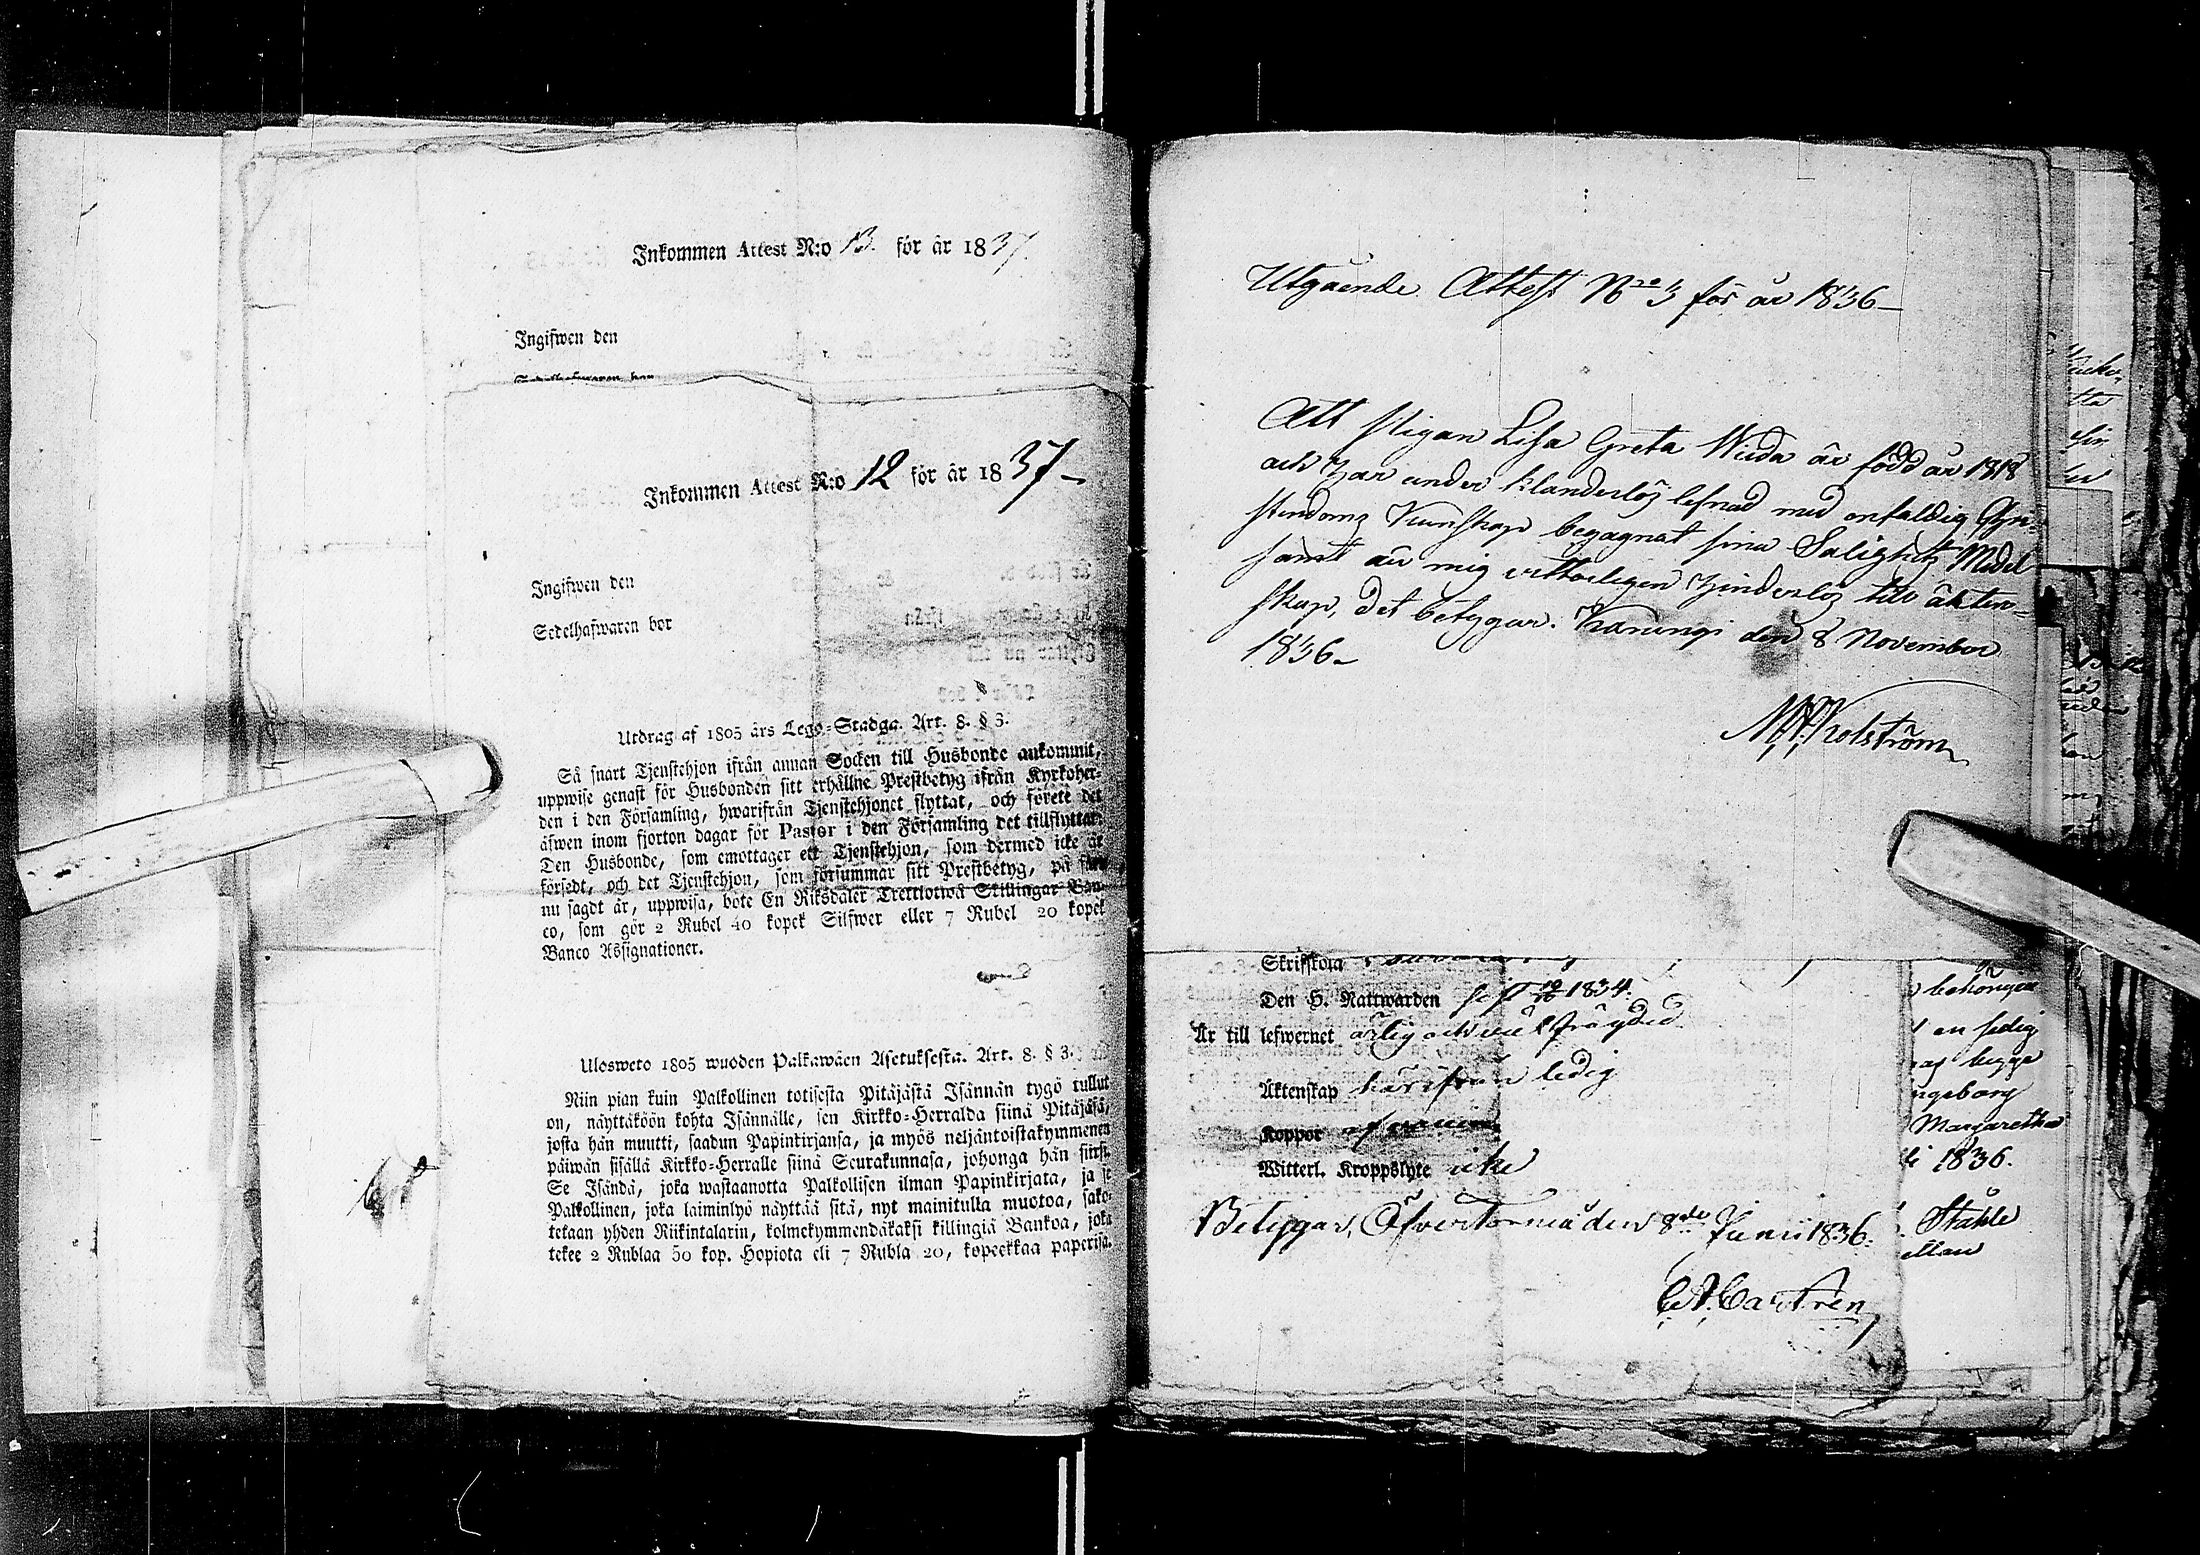 Inkommen Attest N:o 13. för år 1837.
Ingifwen den
Sedelhafwaren bor
Inkommen Attest N:o 12 för år 1837-
Ingifwen den
Sedelhafwaren bor
Utdrag af 1805 års Lego-Stadga. Art. 8. § 3.
Så snart Tjenstehjon ifrån annan Socken till Husbonde ankommit,
uppwise genast för Husbonden sitt erhållne Prestbetyg ifrån Kyrkoher-
den i den Församling, hwarifrån Tjenstehjonet flyttat, och förete det
äfwen inom fjorton dagar för Pastor i den Församling det tillflyttar.
Den Husbonde, som emottager ett Tjenstehjon, som dermed icke är
försedt, och det Tjenstehjon, som försummar sitt Prestbetyg, på sätt
nu sagdt är, uppwisa, böte En Riksdaler Trettiotwå Skillingar Ban-
co, som gör 2 Rubel 40 kopek Silfwer eller 7 Rubel 20 kopek
Banco Assignationer.
Ulosweto 1805 wuoden Palkawäen Asetuksesta. Art. 8. § 3.
Niin pian kuin Palkollinen toisesta Pitäjästä Isännän tygö tullut
on, näyttäköön kohta Isännälle, sen Kirkko-Herralda siinä Pitäjäsä,
josta hän muutti, saadun Papinkirjansa, ja myös neljäntoistakymmenen
päiwän sisällä Kirkko-Herralle siinä Seurakunnasa, johonga hän siirsi.
Se Isändä, joka wastaanotta Palkollisen ilman Papinkirjata, ja se
Palkollinen, joka laiminlyö näyttää sitä, nyt mainitulla muotoa, sako-
tetaan yhden Riikintalarin, kolmekymmendäkaksi killingiä Bankoa, joka
tekee 2 Rublaa 50 kop. Hopiota eli 7 Rubla 20, kopeekkaa paperisa.
Utgående Attest N:ro 3 för år 1836-
Att Pigan Lisa Greta Wuda är född år 1818
och har under klanderlös lefnad med enfaldig Chri-
stendoms Kunskap begagnat sina Salighets Medel
samt är mig vitterligen hinderlös till äkten-
skap, det betygar. Karungi den 8 November
1836-
Kolström
Skriftskola
Den H. Nattwarden 1834.
Är till lefwernet ärlig och väl frägdad
Äktenskap härifrån ledig
Koppor
Witterl. Kroppslyte icke
Betygar, Öfvertorneå den 8de Junii 1836.
Castrén
en ledig
begge
Ingeborg
Margaretha
1836.
Ståhle